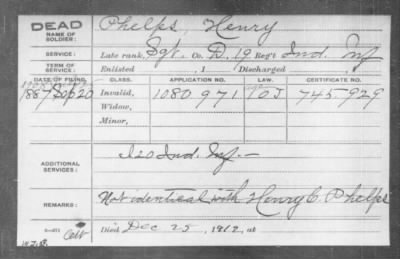 DEAD
NAME OF SOLDIER: Phelps, Henry
SERVICE: Late rank, Sgt. Co. D, 19 Reg't Ind. Inf
TERM OF SERVICE: Enlisted , 1 Discharged , 1
DATE OF FILING. CLASS. APPLICATION NO. LAW. CERTIFICATE NO.
1887 Sep 20 Invalid, 1080 971 745.929
Widow,
Minor,
ADDITIONAL SERVICES: I 20 Ind. Inf. —
REMARKS: Not identical with Henry C. Phelps
Died Dec 25, 1912, at